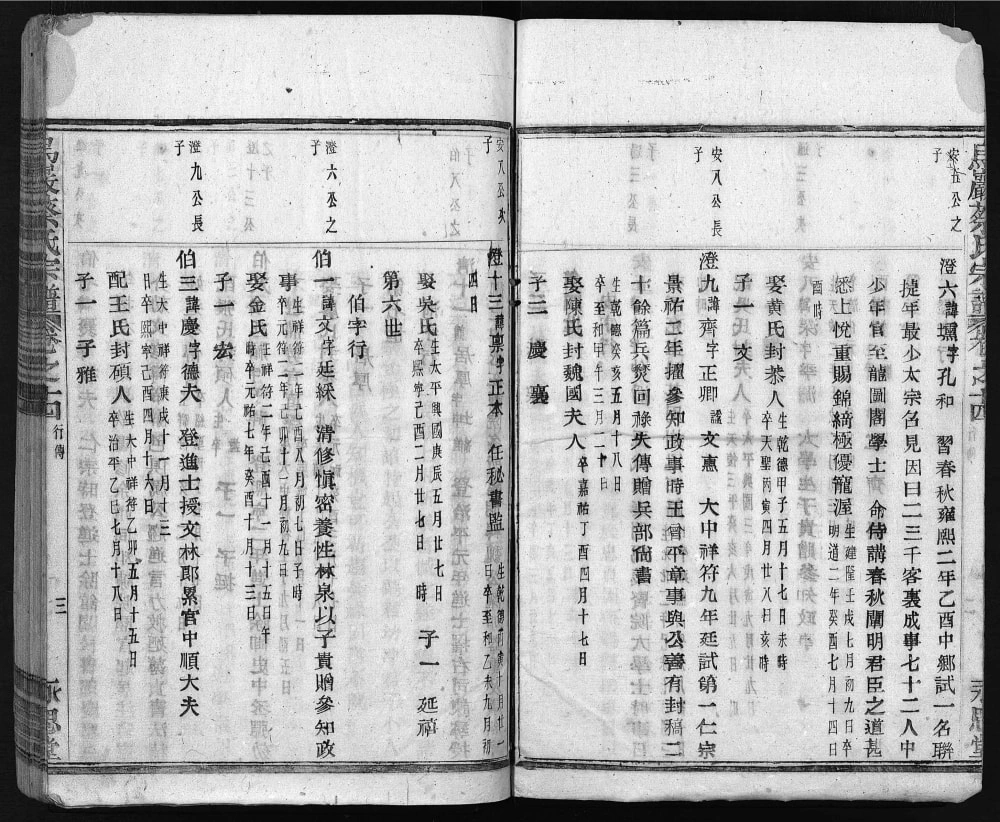 安五公之
子
澄六諱壎字孔和 習春秋雍熙二年乙酉中鄉試一名聯
捷年最少太宗名見因曰二三千客裏成事七十二人中
少年官至龍圖閣學士 命侍講春秋闡明君臣之道甚
悉上悅重賜錦綺極優寵渥生建隆壬戌七月初九日卒
明道二年癸酉七月十四日
酉時
娶黃氏封恭人生乾德甲子五月十七日未時
卒天聖丙寅四月廿八日亥時
子一 文
安八公長
子
澄九諱齊字正卿謚文憲 大中祥符九年廷試第一仁宗
景祐二年擢參知政事時王曾平章事與公善有封稿二
十餘篇兵焚回祿失傳贈兵部尙書
生乾德癸亥五月十八日
卒至和甲午三月二十日
娶陳氏封魏國夫人卒嘉祐丁酉四月十七日
子三 慶 襲
安八公次
子
澄十三諱稟字正本 任秘書監生乾德丙寅十月廿一
日卒至和乙未九月初
四日
娶吳氏生太平興國庚辰五月廿七日
卒熙寧己酉二月廿七日 時 子一 延禧
第六世
伯字行
澄六公之
子
伯一諱文字廷綵 清修愼密養性林泉以子貴贈參知政
事生祥符二年己酉八月初七日子時
卒元符二年己卯十一月初九日
娶金氏生祥符二年己酉十一月十五日午
時卒元祐七年癸酉十月十三日
子一宏
澄九公長
子
伯三諱慶字德夫 登進士授文林郎累官中順大夫
生大中祥符庚戌十一月十三
日卒熙寧己酉四月十六日
配王氏封碩人生大中祥符乙卯五月十五日
卒治平乙巳七月十八日
子一子雅
烏巖蔡氏宗譜卷之十四 行傳
三
永思堂